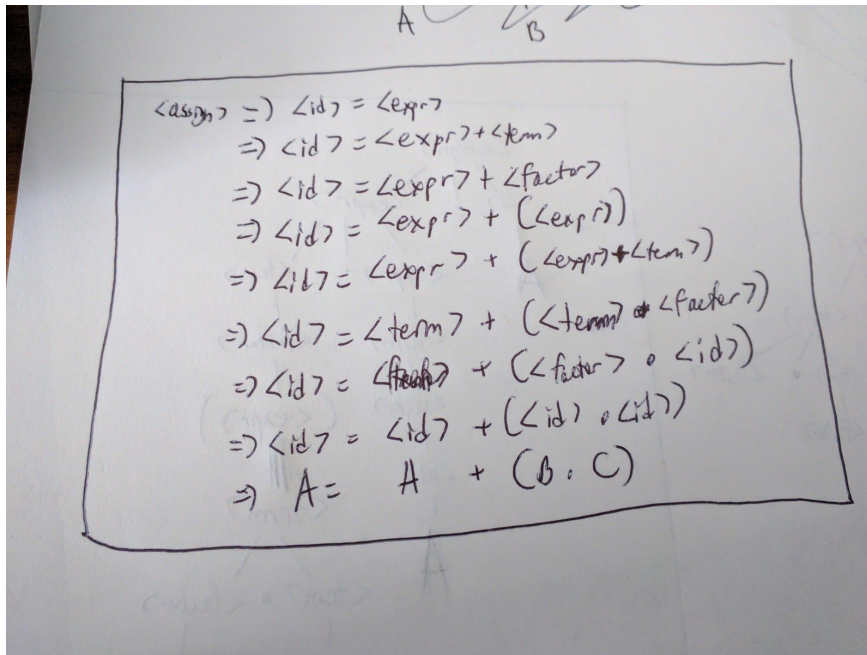 A
B
<assign> => <id> = <expr>
=> <id> = <expr> + <term>
=> <id> = <expr> + <factor>
=> <id> = <expr> + (<expr>)
=> <id> = <expr> + (<expr> + <term>)
=> <id> = <term> + (<term> * <factor>)
=> <id> = + (<factor> • <id>)
=> <id> = <id> + (<id> • <id>)
=> A = A + (B • C)